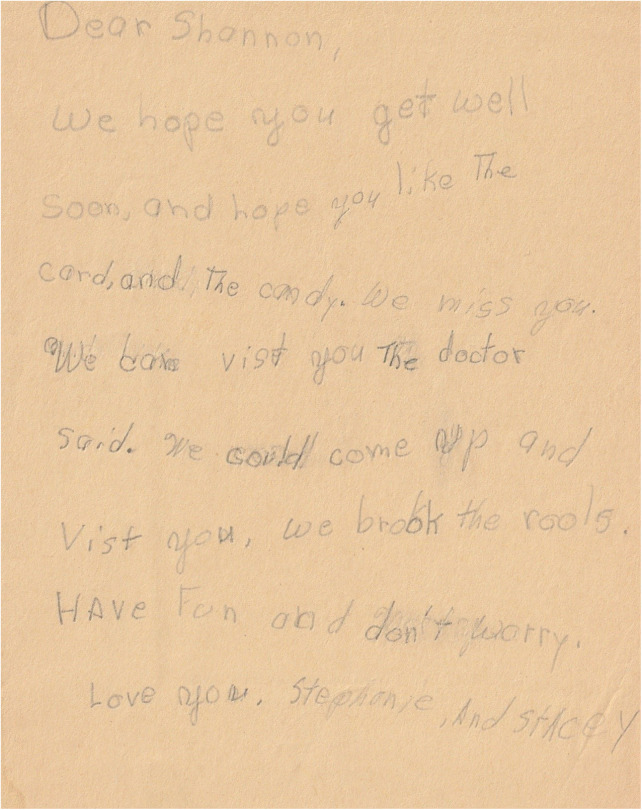 Dear Shannon,
We hope you get well
Soon, and hope you like The
card, and The candy. We miss you.
We can vist you The doctor
said. We could come up and
Vist you, we brook the rools.
HAVe Fun and don't worry.
Love you. Stephanie, And STACEY